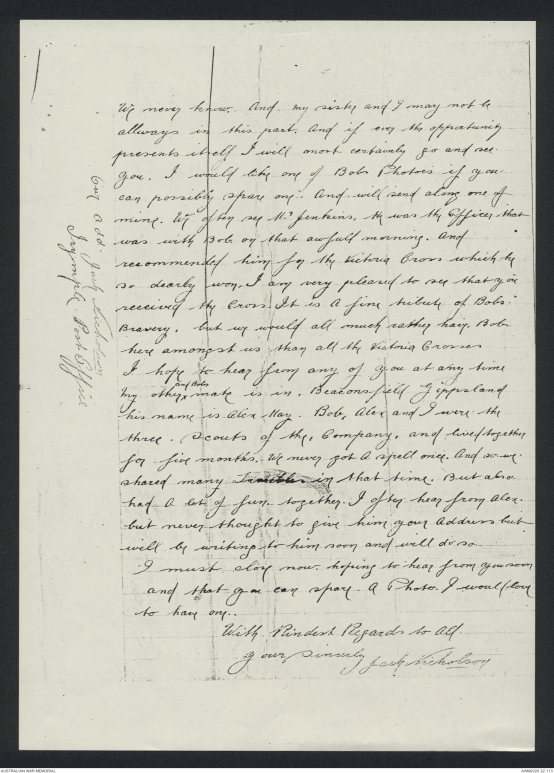 We never know. And my sister and I may not be
allways in this part. And if ever the opportunity
presents itself I will most certainly go and see
you. I would like one of Bobs Photos if you
can possibly spare one. And will send along one of
mine. We often see Mr Jenkins. He was the Officer that
was with Bob on that awfull morning. And
recommended him for the Victoria Cross which he
so dearly won. I am very pleased to see that you
received the Cross. It is A fine tribute of Bobs
Bravery. but we would all much rather have Bob
here amongst us than all the Victoria Crosses
I hope to hear from any of you at any time
My other and Bobs mate is in. Beaconsfield Gippsland
his name is Alex May. Bob, Alex and I were the
three. Scouts of the. Company. and lived together
for five months. We never got A spell once. And so we
shared many troubles in that time. But also
had A lot of fun together. I often hear from Alex.
but never thought to give him your Address but
will be writing to him soon and will do so.
I must close now. hoping to hear from you soon
and that you can spare. A Photo. I would love
to have one..
With Kindest Regards to All.
Your Sincerely Jack Nicholson
my add Jack Nicholson
Irymple Post Office
AUSTRALIAN WAR MEMORIAL